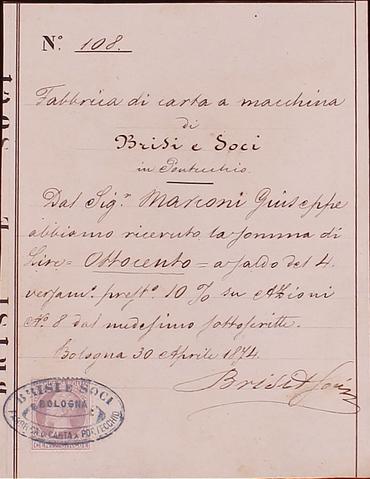 N.º 108.
Fabbrica di carta a macchina
di
Brisi e Soci
in Pontecchio
Dal Sig.r Marconi Giuseppe
abbiamo ricevuto la somma di
Lire = Ottocento = a saldo del 4.
versam.º prest.º 10 % su Azioni
N.º 8 dal medesimo sottoscritte.
Bologna 30 Aprile 1874.
Brisi & Soci
BRISI E SOCI
BOLOGNA
CARTA A PONTECCHIO